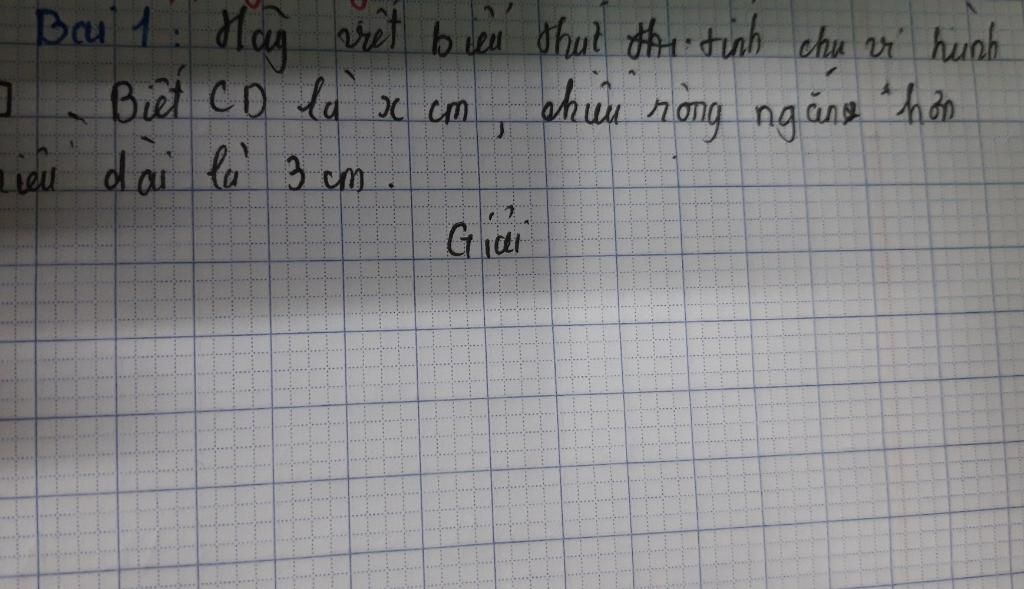 Bài 1: Hãy viết biểu thức tính chu vi hình
. Biết CD là x cm, chiều rộng ngắn hơn
dài là 3 cm.
Giải